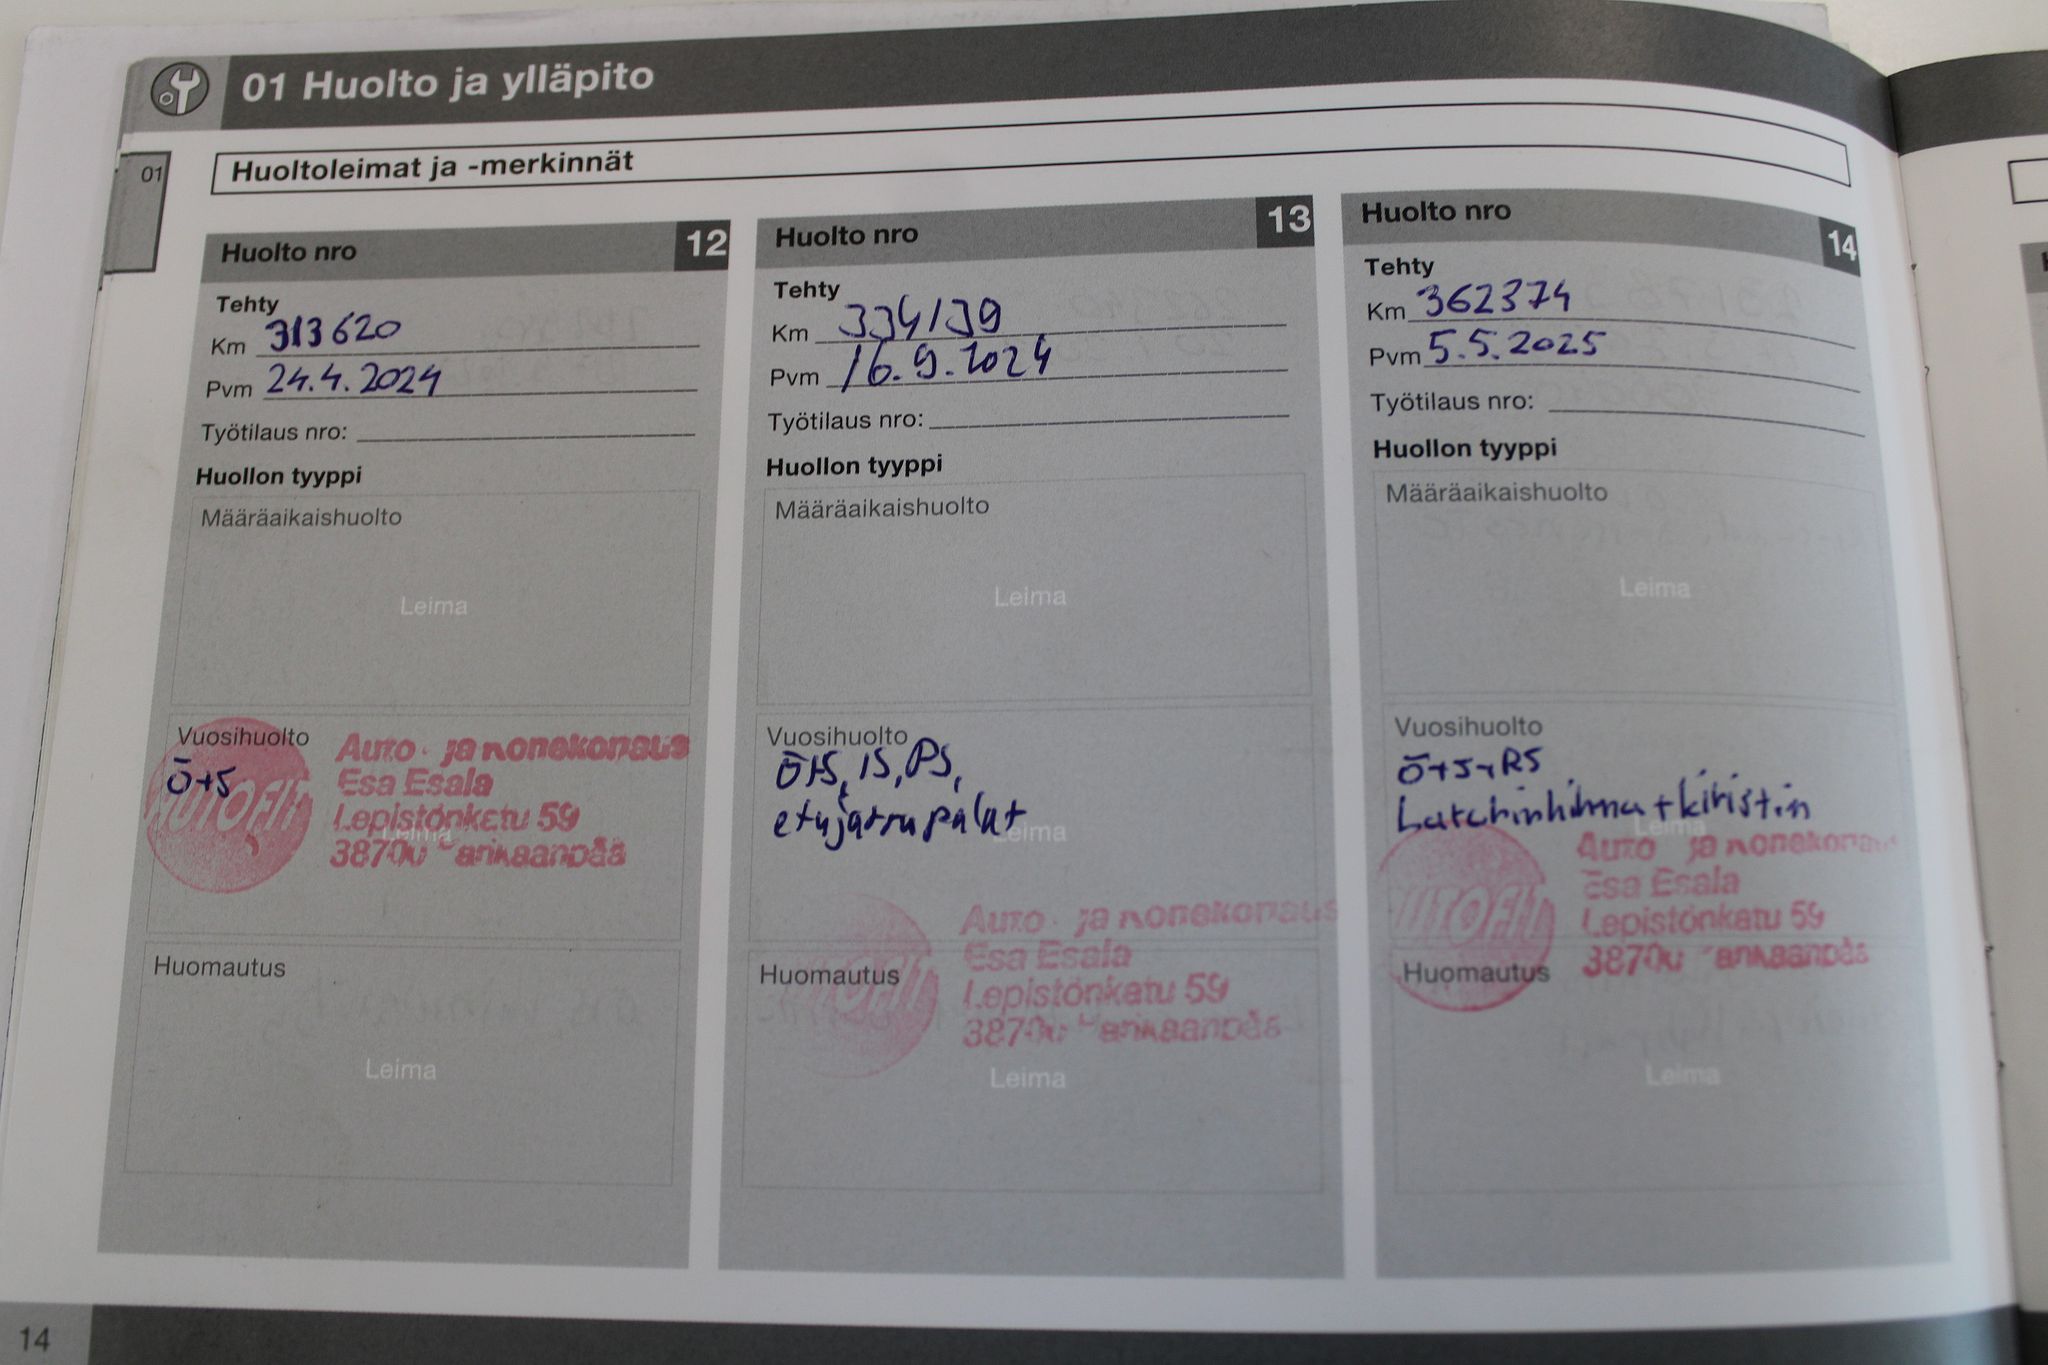 01 Huolto ja ylläpito
01
Huoltoleimat ja -merkinnät
Huolto nro 12
Tehty
Km 313620
Pvm 24.4.2024
Työtilaus nro:
Huollon tyyppi
Määräaikaishuolto
Leima
Vuosihuolto
Ö+S
AUTOFIT
Auto- ja Konekorjaus
Esa Esala
Lepistönkatu 59
38700 Kankaanpää
Leima
Huomautus
Leima
Huolto nro 13
Tehty
Km 334139
Pvm 16.9.2024
Työtilaus nro:
Huollon tyyppi
Määräaikaishuolto
Leima
Vuosihuolto
Ö+S, IS, PS,
etujarrupalat
Leima
Auto- ja Konekorjaus
Esa Esala
Lepistönkatu 59
38700 Kankaanpää
AUTOFIT
Huomautus
Leima
Huolto nro 14
Tehty
Km 362374
Pvm 5.5.2025
Työtilaus nro:
Huollon tyyppi
Määräaikaishuolto
Leima
Vuosihuolto
Ö+S+RS
Laturinhihna+kiristin
Leima
AUTOFIT
Auto- ja Konekorjaus
Esa Esala
Lepistönkatu 59
38700 Kankaanpää
Huomautus
Leima
14